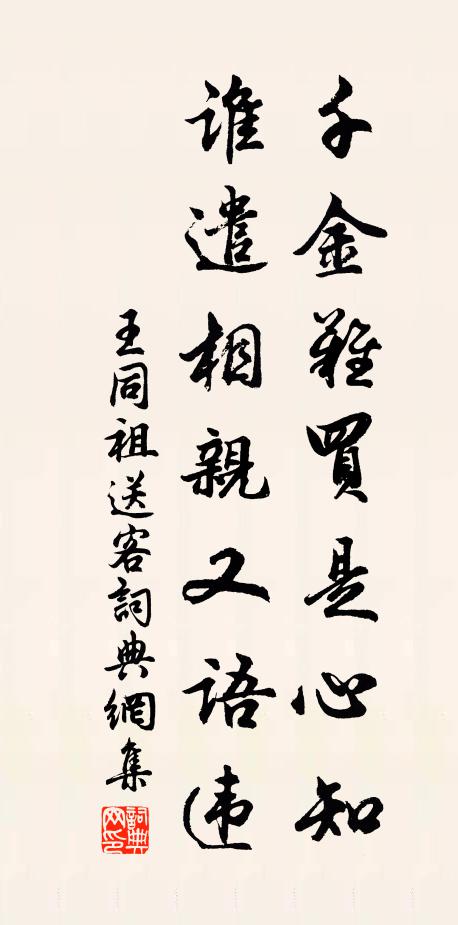 千金難買是心知
誰遣相親又語违
王同祖送客詞典網集
詞典網印